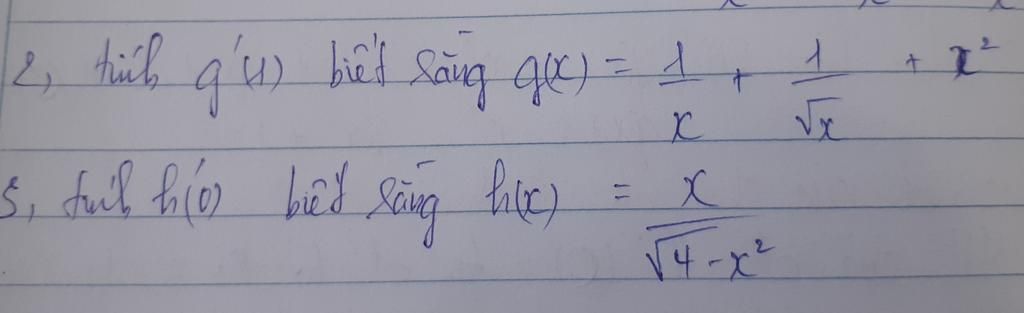 2, tính g'(1) biết rằng g(x) = 1/x + 1/√x + x²
5, tính h'(0) biết rằng h(x) = x/√4-x²